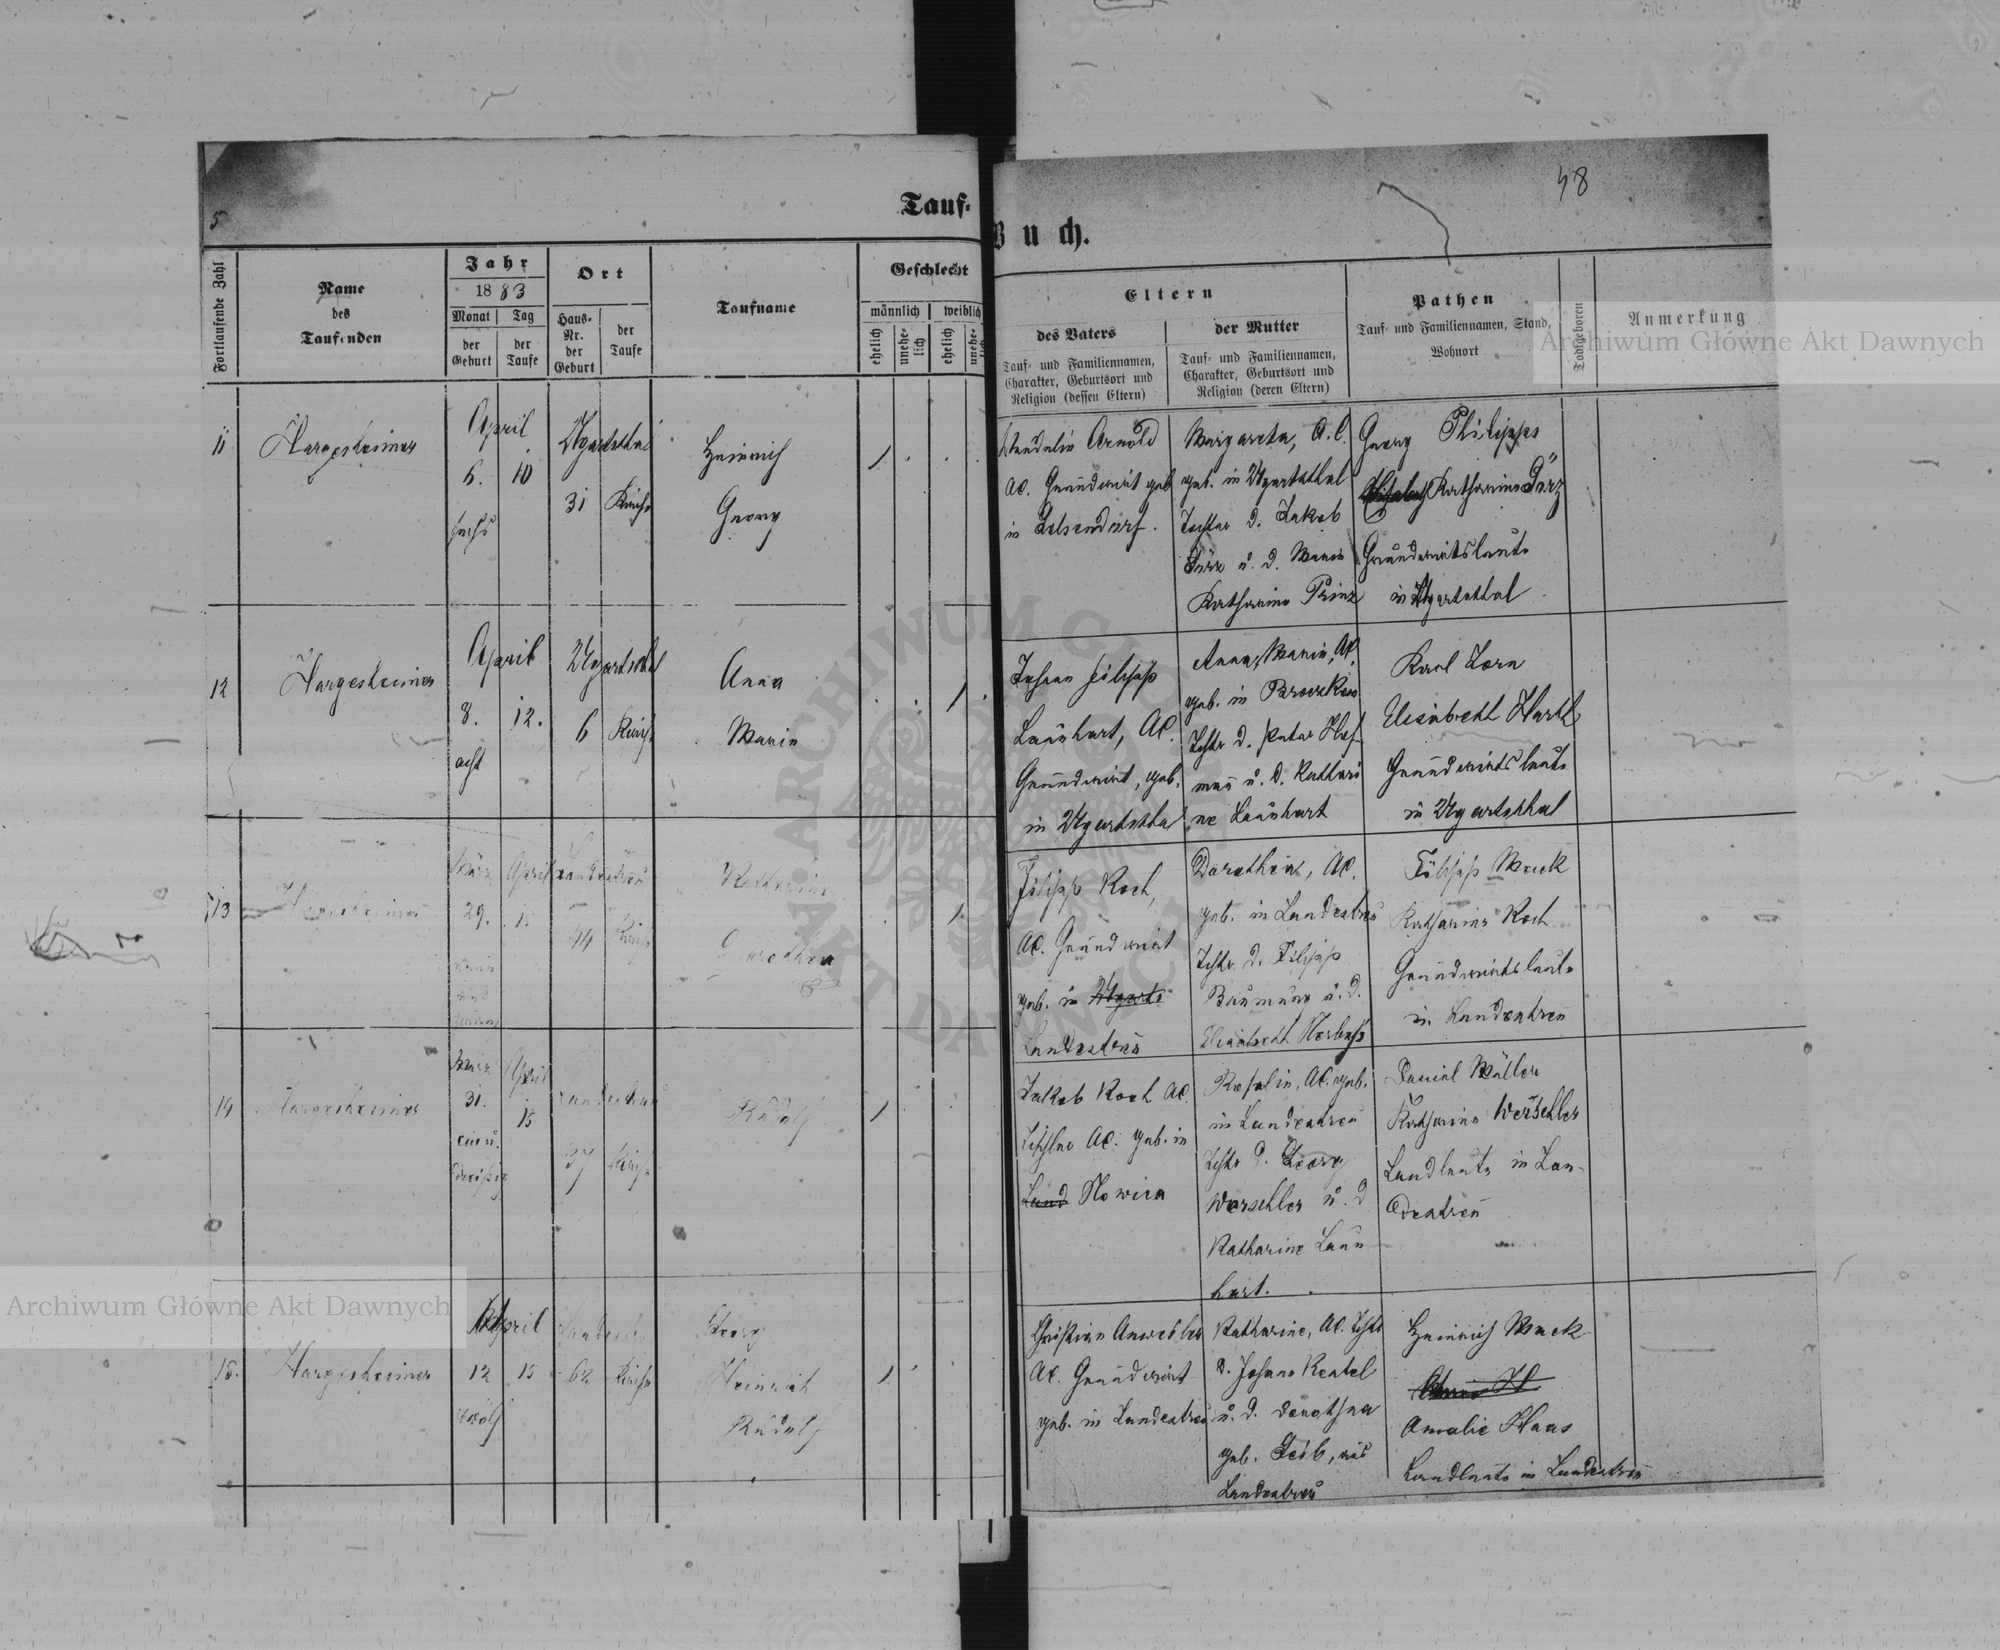 5
Tauf-
Buch.
48
Fortlaufende Zahl
Name
des
Taufenden
Jahr
1883
Monat
Tag
der
Geburt
der
Taufe
Ort
Haus-
Nr.
der
Geburt
der
Taufe
Taufname
Geschlecht
männlich
weiblich
ehelich
unehe-
lich
ehelich
unehe-
lich
Eltern
des Vaters
Tauf- und Familiennamen,
Charakter, Geburtsort und
Religion (dessen Eltern)
der Mutter
Tauf- und Familiennamen,
Charakter, Geburtsort und
Religion (deren Eltern)
Pathen
Tauf- und Familiennamen, Stand,
Wohnort
Todtgeboren
Anmerkung
11
Hargesheimer
April
6. 10
sechs
Ugartsthal
31 Kirche
Heinrich
Georg
Arnold
AC. Grundwirt geb
in
Margareta, A.C.
geb. in Ugartsthal
Tochter d. Jakob
u. d. Maria
Katharina Prinz
Georg Philipps
Katharina
Grundwirtsleute
in Ugartsthal
12
Hargesheimer
April
8. 12.
acht
Ugartsthal
6 Kirche
Anna
Maria
Johann Filipp
Launhart, AC.
Grundwirt, geb.
in Ugartsthal
Anna Maria, AC.
geb. in
Tchtr d. Peter Hof
man u. d. Kathari
ne Launhart
Karl Zorn
Elisabeth Harth
Grundwirtsleute
in Ugartsthal
13
Hargesheimer
März April
29. 15
Landestreu
44 Kirche
Katharina
Dorothea
Filipp Koch,
AC. Grundwirt
geb. in Ugarts
Landestreu
Dorothea, AC.
geb. in Landestreu
Tchtr. d. Filipp
Baumung u. d.
Elisabeth
Filipp Mauk
Katharina Koch
Grundwirtsleute
in Landestreu
14
Hargesheimer
März April
31. 15
ein u.
dreißig
Landestreu
37 Kirche
Rudolf
Jakob Koch AC.
Tischler AC. geb. in
Land Nowica
Rosalia, AC. geb.
in Landestreu
Tchtr d. Georg
Werschler u. d
Katharine Laun
hart.
Daniel Müller
Katharina Werschler
Landleute in Lan-
destreu
15.
Hargesheimer
April
12 15
zwölf
62 Kirche
Georg
Heinrich
Rudolf
Christian
AC. Grundwirt
geb. in Landestreu
Katharine, AC. Tchtr
d. Johann
u. d. Dorothea
geb. Geib, aus
Landestreu
Heinrich Mauk
Amalie Haas
Landleute in Landestreu
Archiwum Główne Akt Dawnych
Archiwum Główne Akt Dawnych
ARCHIWUM GŁÓWNE AKT DAWNYCH